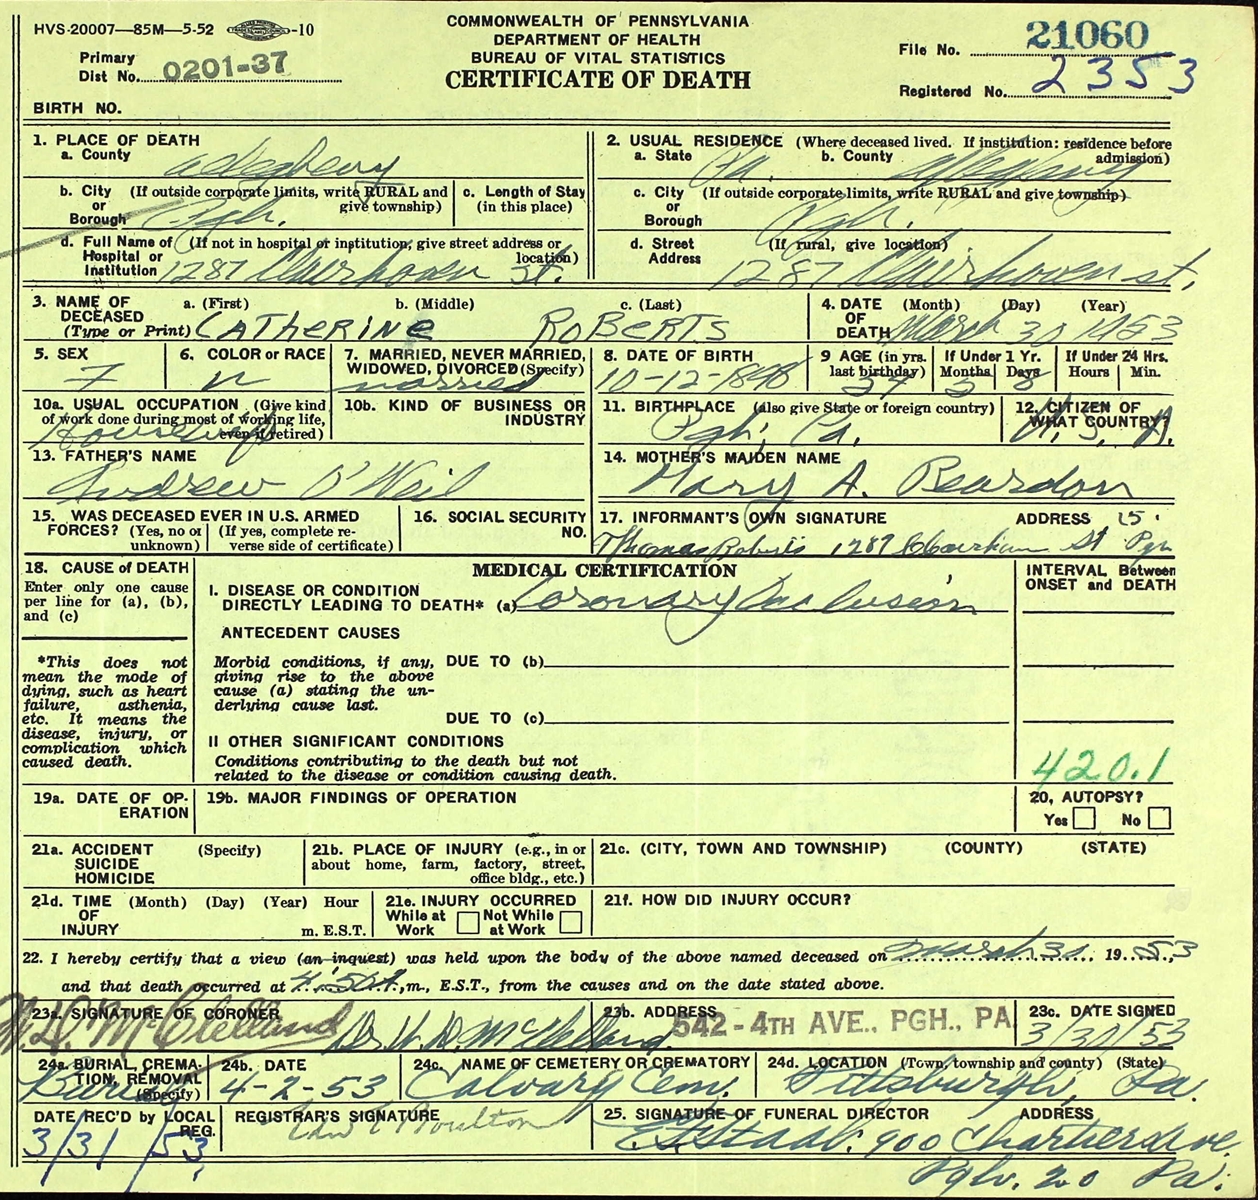 HVS-20007—85M—5-52 -10
COMMONWEALTH OF PENNSYLVANIA
DEPARTMENT OF HEALTH
BUREAU OF VITAL STATISTICS
CERTIFICATE OF DEATH
Primary
Dist No. 0201-37
File No. 21060
Registered No. 2353
BIRTH NO.
1. PLACE OF DEATH
a. County Allegheny
b. City or Borough (If outside corporate limits, write RURAL and give township) Pgh.
c. Length of Stay (in this place)
d. Full Name of Hospital or Institution (If not in hospital or institution, give street address or location) 1287 Clairhaven St.
2. USUAL RESIDENCE (Where deceased lived. If institution: residence before admission)
a. State Pa. b. County Allegheny
c. City or Borough (If outside corporate limits, write RURAL and give township) Pgh.
d. Street Address (If rural, give location) 1287 Clairhaven St.
3. NAME OF DECEASED (Type or Print) a. (First) b. (Middle) c. (Last)
CATHERINE ROBERTS
4. DATE OF DEATH (Month) (Day) (Year)
March 30 1953
5. SEX F
6. COLOR or RACE W
7. MARRIED, NEVER MARRIED, WIDOWED, DIVORCED (Specify) married
8. DATE OF BIRTH 10-12-1898
9 AGE (in yrs. last birthday) 54
If Under 1 Yr. Months 5 Days
If Under 24 Hrs. Hours Min.
10a. USUAL OCCUPATION (Give kind of work done during most of working life, even if retired) Housewife
10b. KIND OF BUSINESS OR INDUSTRY
11. BIRTHPLACE (also give State or foreign country) Pgh, Pa.
12. CITIZEN OF WHAT COUNTRY? U. S. A.
13. FATHER'S NAME
Andrew O'Neil
14. MOTHER'S MAIDEN NAME
Mary A. Reardon
15. WAS DECEASED EVER IN U.S. ARMED FORCES? (Yes, no or unknown) (If yes, complete reverse side of certificate)
16. SOCIAL SECURITY NO.
17. INFORMANT'S OWN SIGNATURE ADDRESS 15.
Thomas Roberts 1287 Clairhaven St Pgh
18. CAUSE of DEATH
Enter only one cause per line for (a), (b), and (c)
*This does not mean the mode of dying, such as heart failure, asthenia, etc. It means the disease, injury, or complication which caused death.
MEDICAL CERTIFICATION
INTERVAL Between ONSET and DEATH
I. DISEASE OR CONDITION
DIRECTLY LEADING TO DEATH* (a) Coronary Occlusion
ANTECEDENT CAUSES
Morbid conditions, if any, giving rise to the above cause (a) stating the underlying cause last.
DUE TO (b)
DUE TO (c)
II OTHER SIGNIFICANT CONDITIONS
Conditions contributing to the death but not related to the disease or condition causing death.
420.1
19a. DATE OF OPERATION
19b. MAJOR FINDINGS OF OPERATION
20, AUTOPSY?
Yes No
21a. ACCIDENT SUICIDE HOMICIDE (Specify)
21b. PLACE OF INJURY (e.g., in or about home, farm, factory, street, office bldg., etc.)
21c. (CITY, TOWN AND TOWNSHIP) (COUNTY) (STATE)
21d. TIME OF INJURY (Month) (Day) (Year) Hour m. E.S.T.
21e. INJURY OCCURRED
While at Work Not While at Work
21f. HOW DID INJURY OCCUR?
22. I hereby certify that a view (an inquest) was held upon the body of the above named deceased on march 30 1953
and that death occurred at 4:50 A.,m., E.S.T., from the causes and on the date stated above.
23a. SIGNATURE OF CORONER
W. D. McClelland Dr. W. D. McClelland
23b. ADDRESS 542 - 4TH AVE., PGH., PA
23c. DATE SIGNED
3/30/53
24a BURIAL, CREMATION, REMOVAL (Specify) Burial
24b. DATE
4-2-53
24c. NAME OF CEMETERY OR CREMATORY
Calvary Cem.
24d. LOCATION (Town, township and county) (State)
Pittsburgh, Pa.
DATE REC'D by LOCAL REG.
3/31/53
REGISTRAR'S SIGNATURE
25. SIGNATURE OF FUNERAL DIRECTOR ADDRESS
900 Chartiers Ave.
Pgh. 20 Pa.